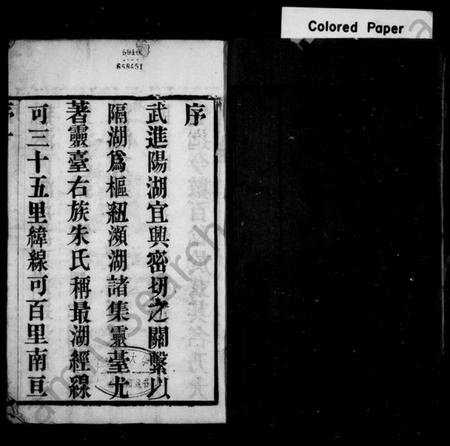 Colored Paper
序
武進陽湖宜興密切之關繫以
隔湖爲樞紐瀕湖諸集靈臺尤
著靈臺右族朱氏稱最湖經線
可三十五里緯線可百里南亘